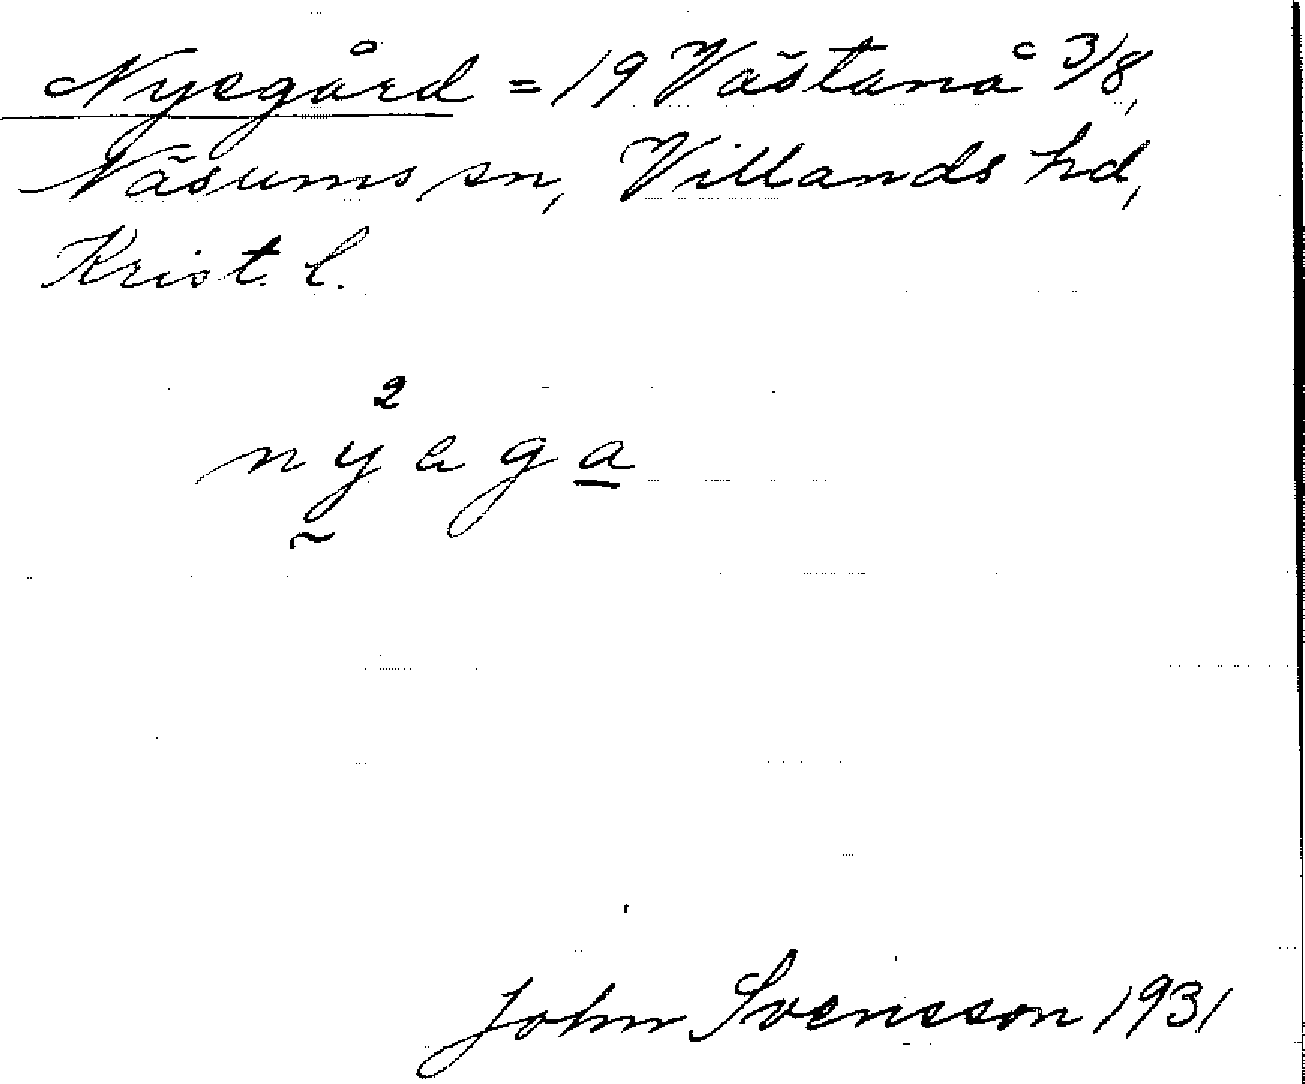 Nyegård = 19 Västanå 3/8,
Näsums sn, Villands hd,
Krist. l.
2
nyega
John Svensson 1931